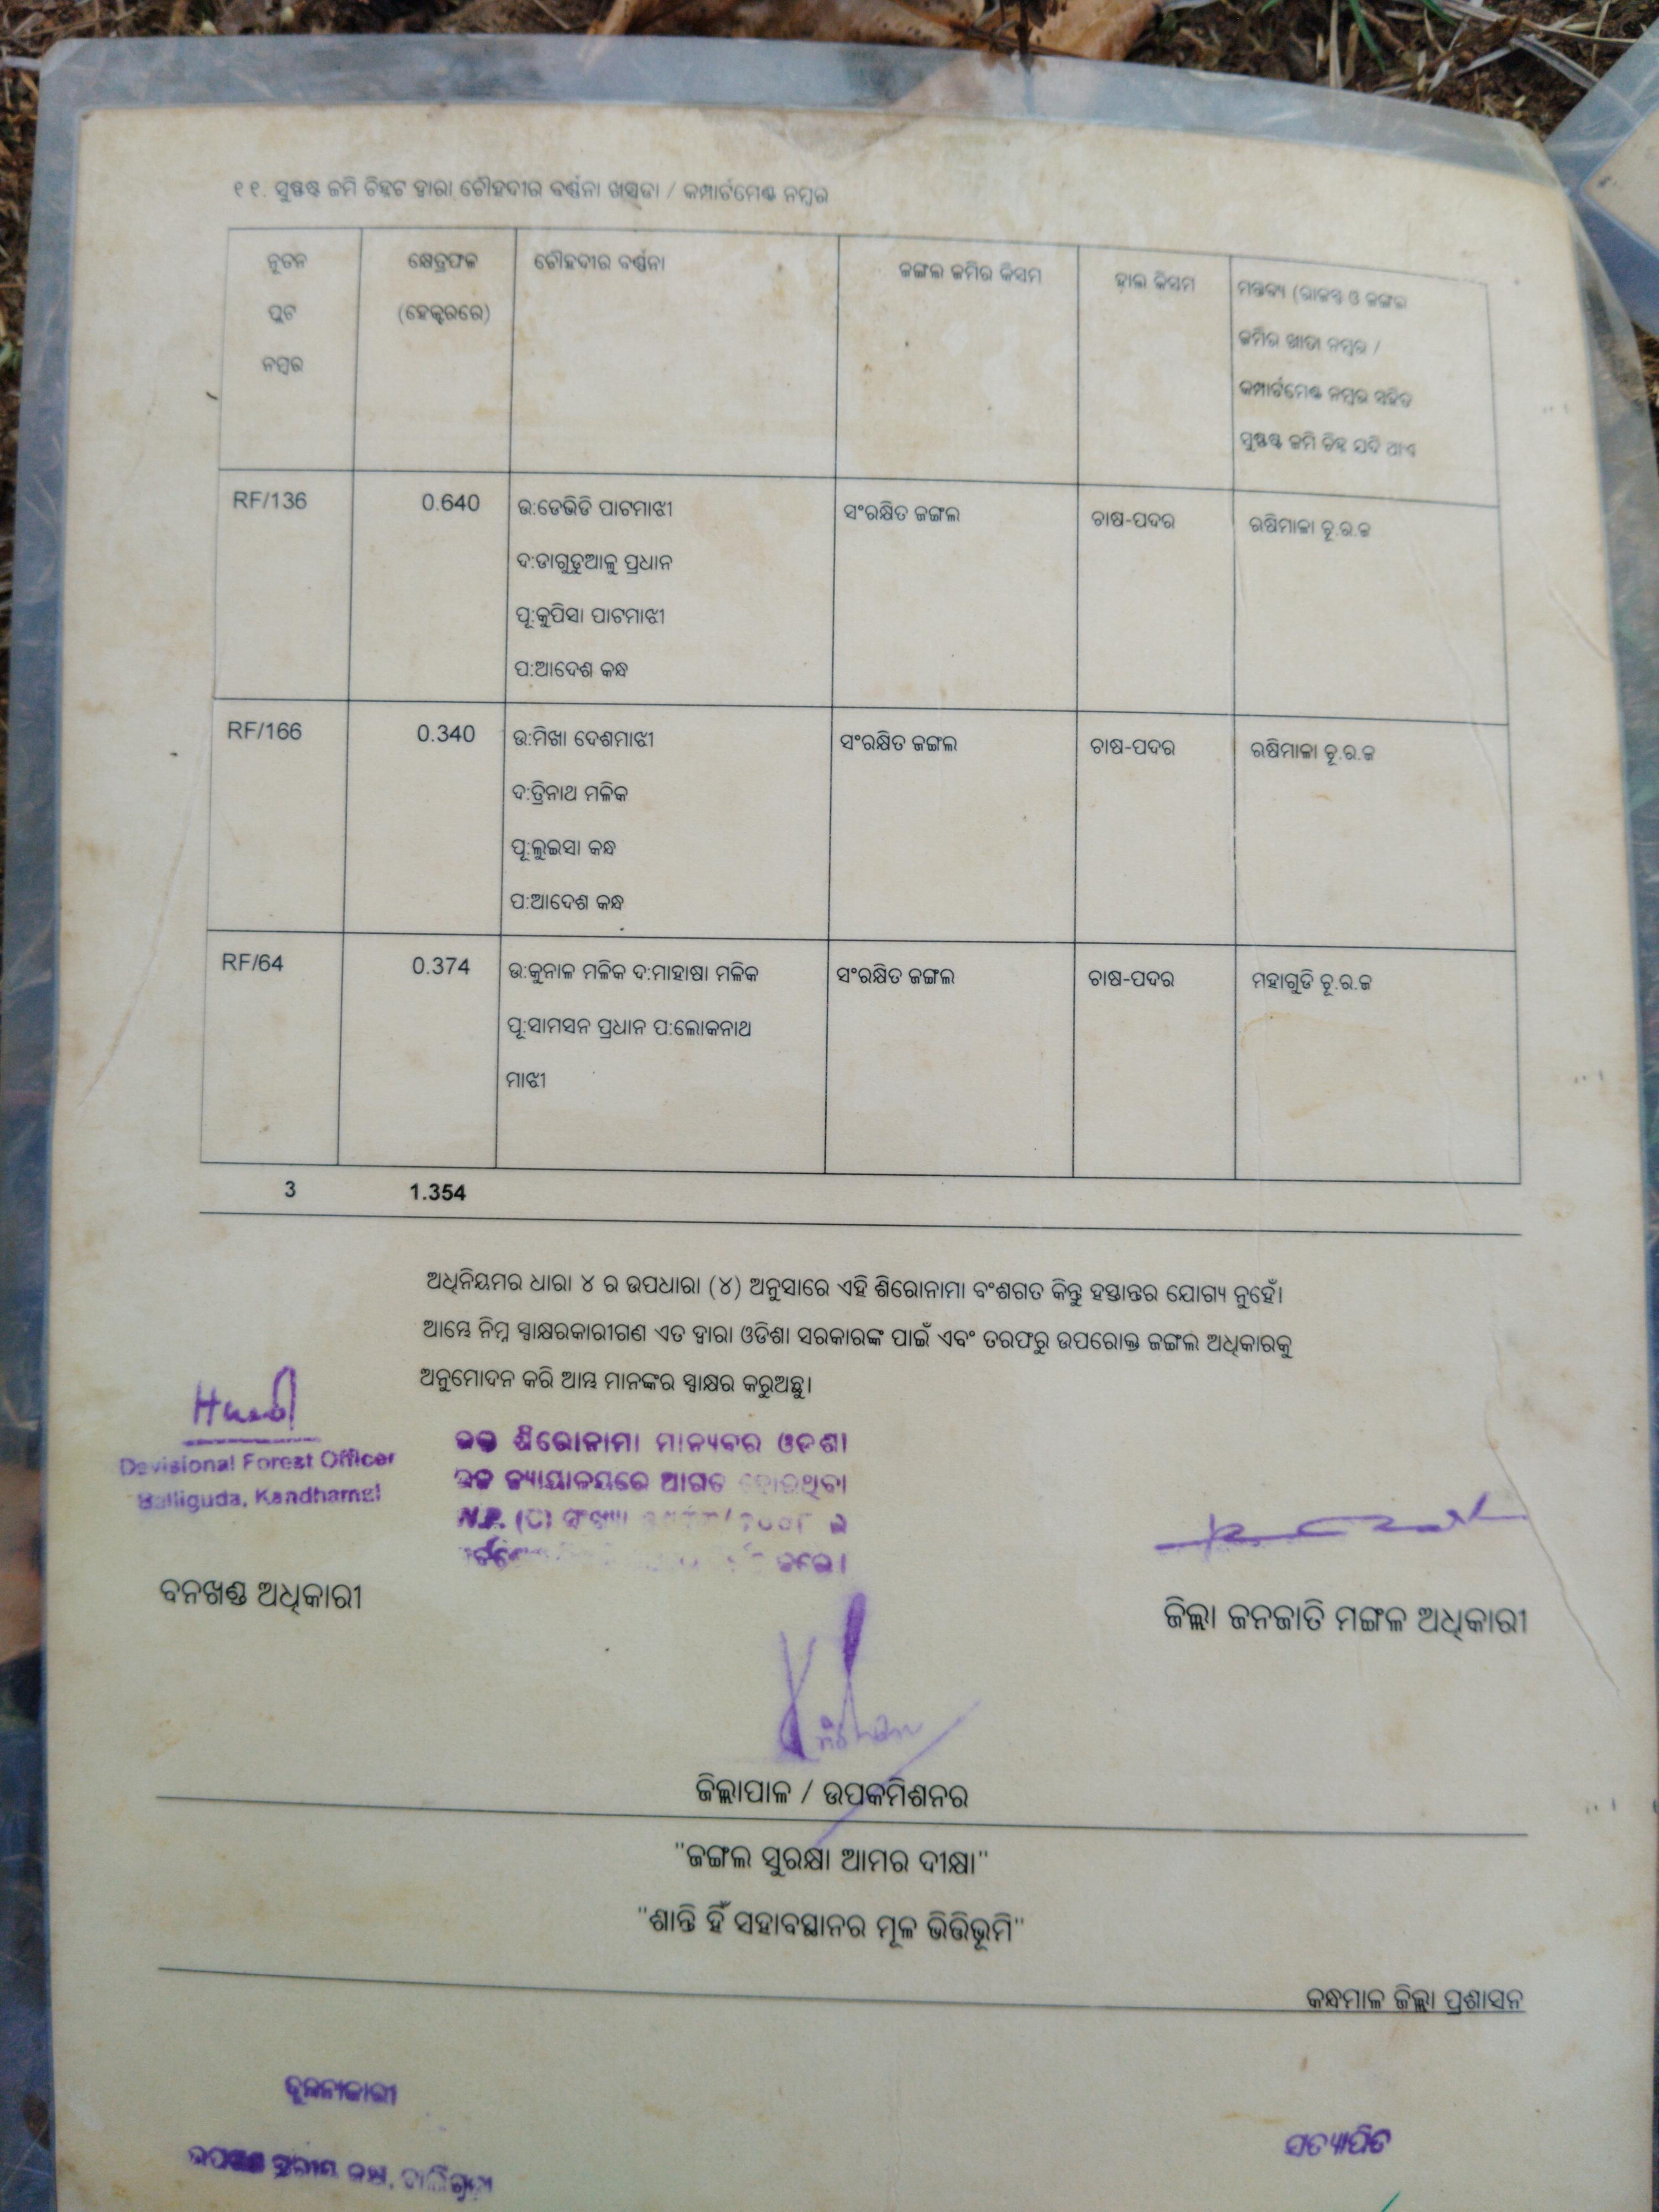 ୧୧. ସୁଷ୍ପଷ୍ଟ ଜମି ଚିହଟ ଦ୍ଵାରା ଚୌହଦୀର ବର୍ଣ୍ଣନା ଖସଡା / କମ୍ପାର୍ଟମେଣ୍ଟ ନମ୍ବର
ନୂତନ ପ୍ଲଟ ନମ୍ବର
କ୍ଷେତ୍ରଫଳ (ହେକ୍ଟରରେ)
ଚୌହଦୀର ବର୍ଣ୍ଣନା
ଜଙ୍ଗଲ ଜମିର କିସମ
ହାଲ କିସମ
ମନ୍ତବ୍ୟ (ରାଜସ୍ୱ ଓ ଜଙ୍ଗଲ
ଜମିର ଖାତା ନମ୍ବର /
କମ୍ପାର୍ଟମେଣ୍ଟ ନମ୍ବର ସହିତ
ସୁଷ୍ପଷ୍ଟ ଜମି ଚିହ୍ନ ଯଦି ଥାଏ
RF/136 0.640 ଉ:ଡେଭିଡି ପାଟମାଝୀ ସଂରକ୍ଷିତ ଜଙ୍ଗଲ ଚାଷ-ପଦର ଋଷିମାଳା ଚୂ.ର.ଜ
ଦ:ଡାଗୁଡୁଆଳୁ ପ୍ରଧାନ
ପୂ:କୁପିସା ପାଟମାଝୀ
ପ:ଆଦେଶ କନ୍ଧ
RF/166 0.340 ଉ:ମିଖା ଦେଶମାଝୀ ସଂରକ୍ଷିତ ଜଙ୍ଗଲ ଚାଷ-ପଦର ଋଷିମାଳା ଚୂ.ର.ଜ
ଦ:ତ୍ରିନାଥ ମଳିକ
ପୂ:ଲୁଇସା କନ୍ଧ
ପ:ଆଦେଶ କନ୍ଧ
RF/64 0.374 ଉ:କୁନାଳ ମଳିକ ଦ:ମାହାଷା ମଳିକ ସଂରକ୍ଷିତ ଜଙ୍ଗଲ ଚାଷ-ପଦର ମହାଗୁଡି ଚୂ.ର.ଜ
ପୂ:ସାମସନ ପ୍ରଧାନ ପ:ଲୋକନାଥ
ମାଝୀ
3 1.354
ଅଧିନିୟମର ଧାରା ୪ ର ଉପଧାରା (୪) ଅନୁସାରେ ଏହି ଶିରୋନାମା ବଂଶଗତ କିନ୍ତୁ ହସ୍ତାନ୍ତର ଯୋଗ୍ୟ ନୁହେଁ।
ଆମ୍ଭେ ନିମ୍ନ ସ୍ୱାକ୍ଷରକାରୀଗଣ ଏତ ଦ୍ୱାରା ଓଡିଶା ସରକାରଙ୍କ ପାଇଁ ଏବଂ ତରଫରୁ ଉପରୋକ୍ତ ଜଙ୍ଗଲ ଅଧିକାରକୁ
ଅନୁମୋଦନ କରି ଆମ୍ଭ ମାନଙ୍କର ସ୍ୱାକ୍ଷର କରୁଅଛୁ।
ଶିରୋନାମା ମାନ୍ୟବର ଓଡିଶା
ନ୍ୟାୟାଳୟରେ ଆଗତ ହୋଇଥିବା
W.P. (C) ସଂଖ୍ୟା
Devisional Forest Officer
Balliguda, Kandhamal
ବନଖଣ୍ଡ ଅଧିକାରୀ
ଜିଲ୍ଲା ଜନଜାତି ମଙ୍ଗଳ ଅଧିକାରୀ
ଜିଲ୍ଲାପାଳ / ଉପକମିଶନର
"ଜଙ୍ଗଲ ସୁରକ୍ଷା ଆମର ଦୀକ୍ଷା"
"ଶାନ୍ତି ହିଁ ସହାବସ୍ଥାନର ମୂଳ ଭିତ୍ତିଭୂମି"
କନ୍ଧମାଳ ଜିଲ୍ଲା ପ୍ରଶାସନ
ତୁଳନାକାରୀ
ସତ୍ୟାପିତ